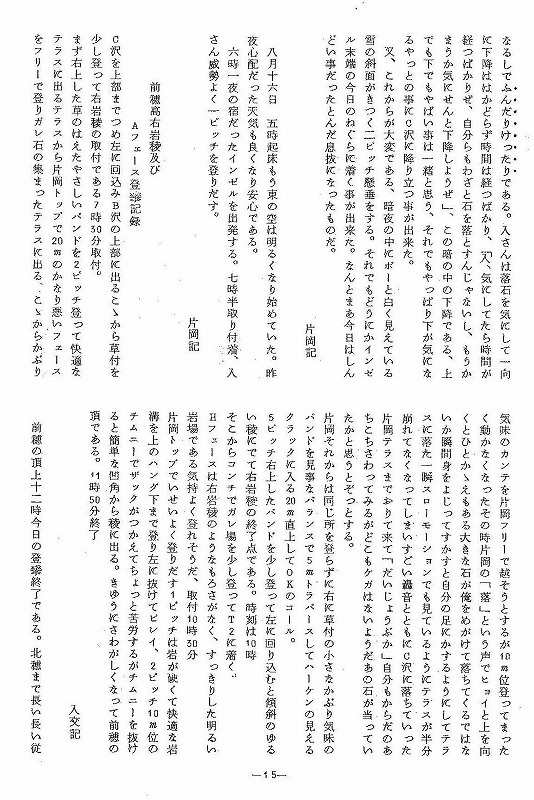 なるしでふんだりけったりである。入さんは落石を気にして一向
に下降ははかどらず時間は経つばかり、「入、気にしてたら時間が
経つばかりぜ、自分らもわざと石を落とすんじゃないし、もうか
まうか気にせんと下降しようぜ」、この暗の中の下降である、上
でも下でもやばい事は一緒と思う、それでもやっぱり下が気にな
るやっとの事にC沢に降り立つ事が出来た。
又、これからが大変である、暗夜の中にボーと白く見えている
雪の斜面がきつく二ピッチ懸垂をする。それでもどうにかインゼ
ル末端の今日のねぐらに着く事が出来た。なんとまあ今日はしん
どい事だったとんだ息抜になったものだ。
片岡記
八月十六日 五時起床もう東の空は明るくなり始めていた。昨
夜心配だった天気も良くなり安心である。
六時一夜の宿だったインゼルを出発する。七時半取り付着、入
さん威勢よく一ピッチを登りだす。
片岡記
前穂高右岩稜及び
Aフェース登攀記録
C沢を上部までつめ左に回込みB沢の上部に出るこゝから草付を
少し登って右岩稜の取付である7時30分取付。
まず右上した草のはえたやさしいバンドを2ピッチ登って快適な
テラスに出るテラスから片岡トップで20mのかなり悪いフェース
をフリーで登りガレ石の集まったテラスに出る、こゝからかぶり
気味のカンテを片岡フリーで越そうとするが10m位登ってまった
く動かなくなったその時片岡の「落」という声でヒョイと上を向
くとひとかゝえもある大きな石が俺をめがけて落ちてくるではな
いか瞬間身をよじってすかすと自分の足にかするようにしてテラ
スに落た一瞬スローモーションでも見ているようにテラスが半分
崩れてなくなってしまいすごい轟音とともにC沢に落ちていった
片岡テラスまでおりて来て「だいじょうぶか」自分もからだのあ
ちこちさわってみるがどこもケガはないようだあの石が当ってい
たかと思うとぞっとする。
片岡それからは同じ所を登らずに右に草付の小さなかぶり気味の
バンドを見事なバランスで5mトラバースしてハーケンの見える
クラックに入る20m直上してOKのコール。
5ピッチ右上したバンドを少し登って左に回り込むと傾斜のゆる
い稜にでて右岩稜の終了点である。時刻は10時
そこからコンテでガレ場を少し登ってT2に着く。
Aフェースは右岩稜のようなもろさがなく、すっきりした明るい
岩場である気持よく登れそうだ、取付10時30分
片岡トップでいせいよく登りだす1ピッチは岩が硬くて快適な岩
溝を上のハング下まで登り左に抜けてビレイ、2ピッチ10m位の
チムニーでザックがつかえてちょっと苦労するがチムニーを抜け
ると簡単な凹角から稜に出る。きゅうにさわがしくなって前穂の
頂である。11時50分終了
入交記
前穂の頂上十二時今日の登攀終了である。北穂まで長い長い従
—15—